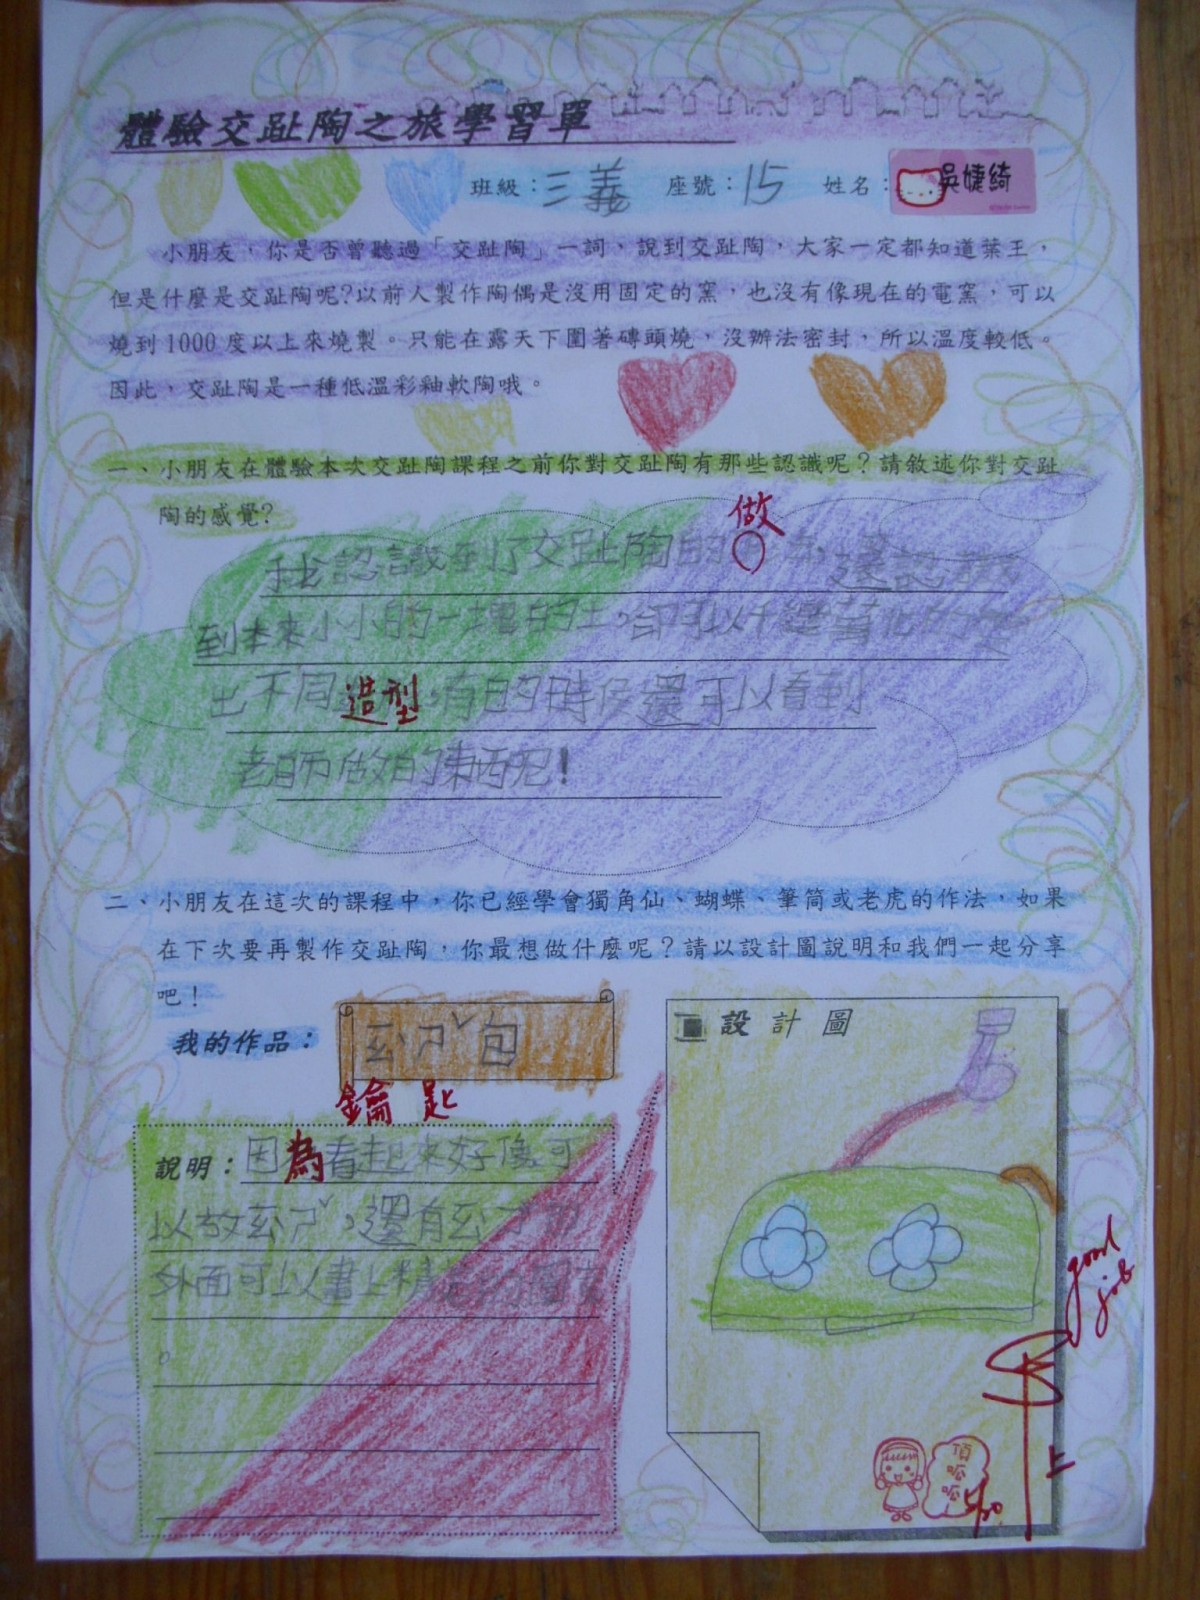 體驗交趾陶之旅學習單
班級：三義 座號：15 姓名：吳婕綺
小朋友，你是否曾聽過「交趾陶」一詞，說到交趾陶，大家一定都知道葉王，
但是什麼是交趾陶呢?以前人製作陶偶是沒用固定的窯，也沒有像現在的電窯，可以
燒到1000度以上來燒製。只能在露天下圍著磚頭燒，沒辦法密封，所以溫度較低。
因此，交趾陶是一種低溫彩釉軟陶哦。
一、小朋友在體驗本次交趾陶課程之前你對交趾陶有那些認識呢？請敘述你對交趾
陶的感覺?
做
我認識到了交趾陶的 還認識
到本來小小的一塊的土，卻可以千變萬化的
出不同造型，有的時候還可以看到
老師做的東西呢！
二、小朋友在這次的課程中，你已經學會獨角仙、蝴蝶、筆筒或老虎的作法，如果
在下次要再製作交趾陶，你最想做什麼呢？請以設計圖說明和我們一起分享
吧！
我的作品：ㄧㄠˋㄕˊ包
鑰匙
設計圖
說明：因為看起來好像可
以放 ，還有
外面可以畫上精 圖
。
good
job
上
頂
呱
呱